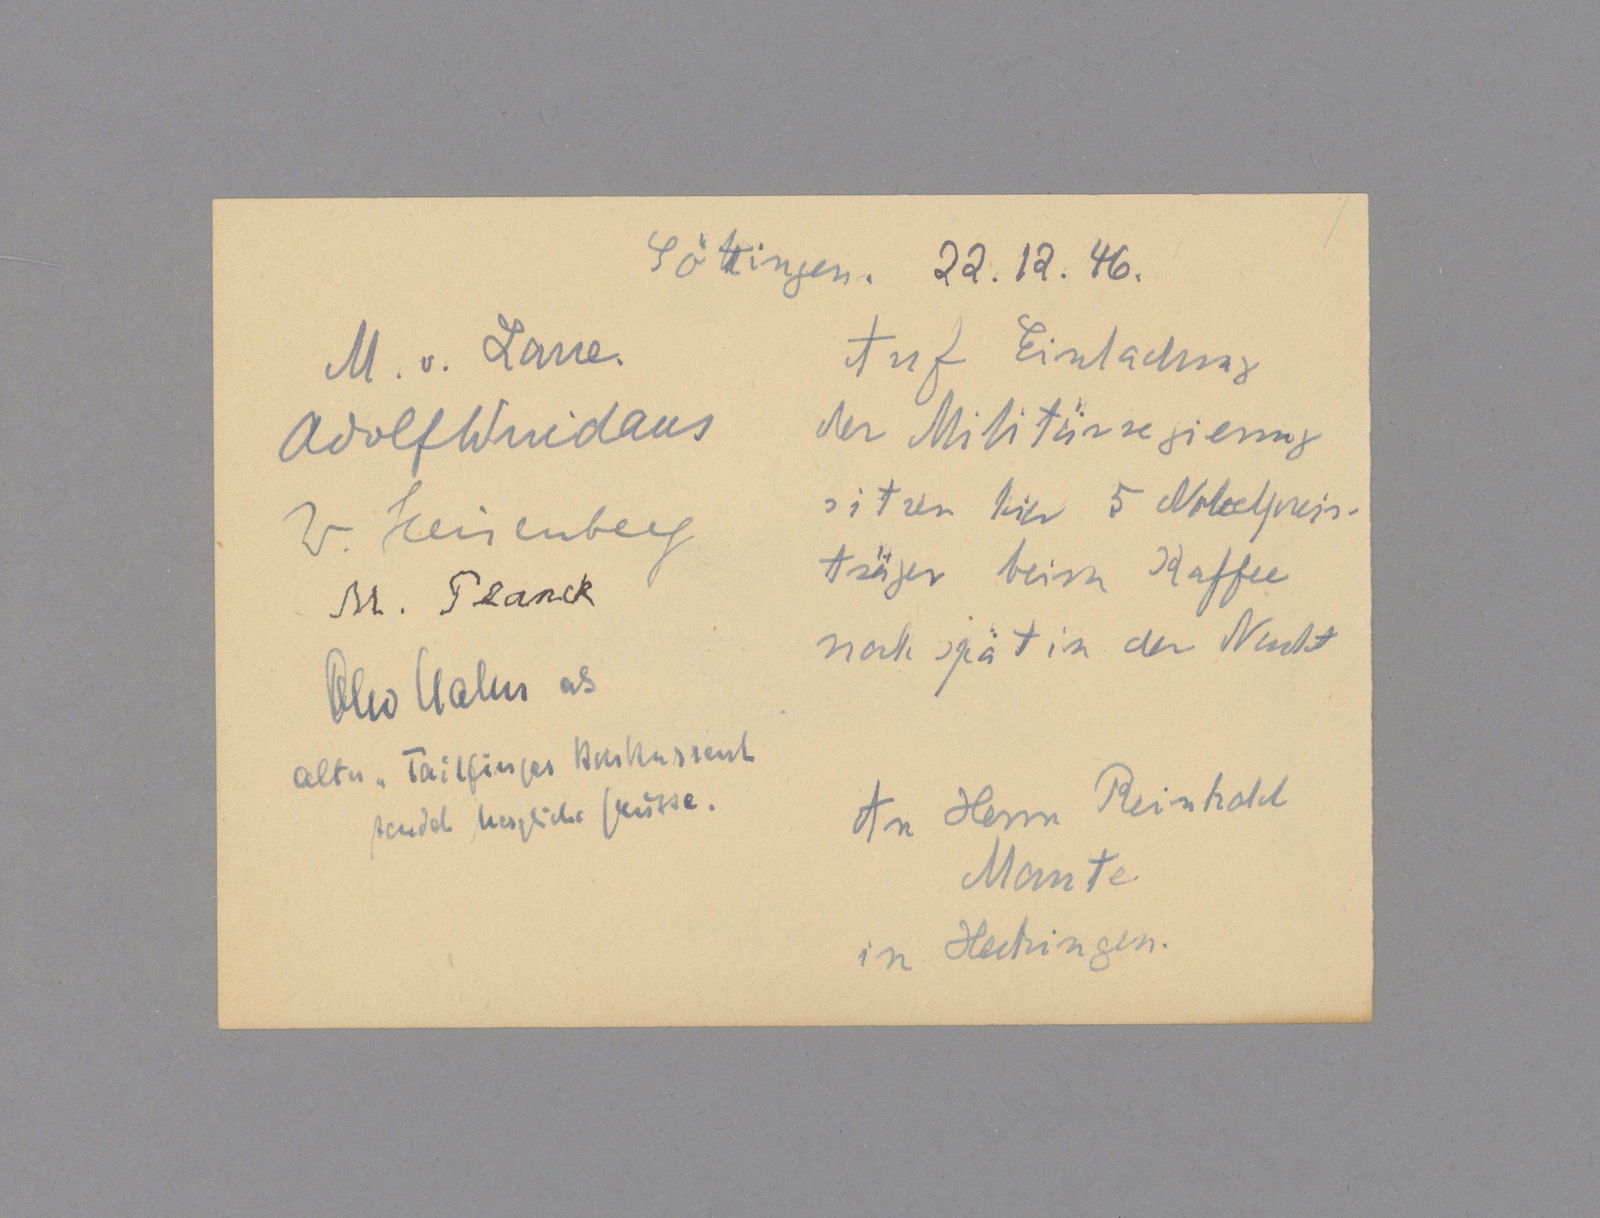 Göttingen. 22.12.46.
M. v. Laue.
Adolf Windaus
W. Heisenberg
M. Planck
Otto Hahn als
alter Tailfinger
sendet herzliche Grüsse.
Auf Einladung
der Militärregierung
sitzen hier 5 Nobelpreis-
träger beim Kaffee
noch spät in der Nacht
An Herrn Reinhold
Maute
in Hechingen.